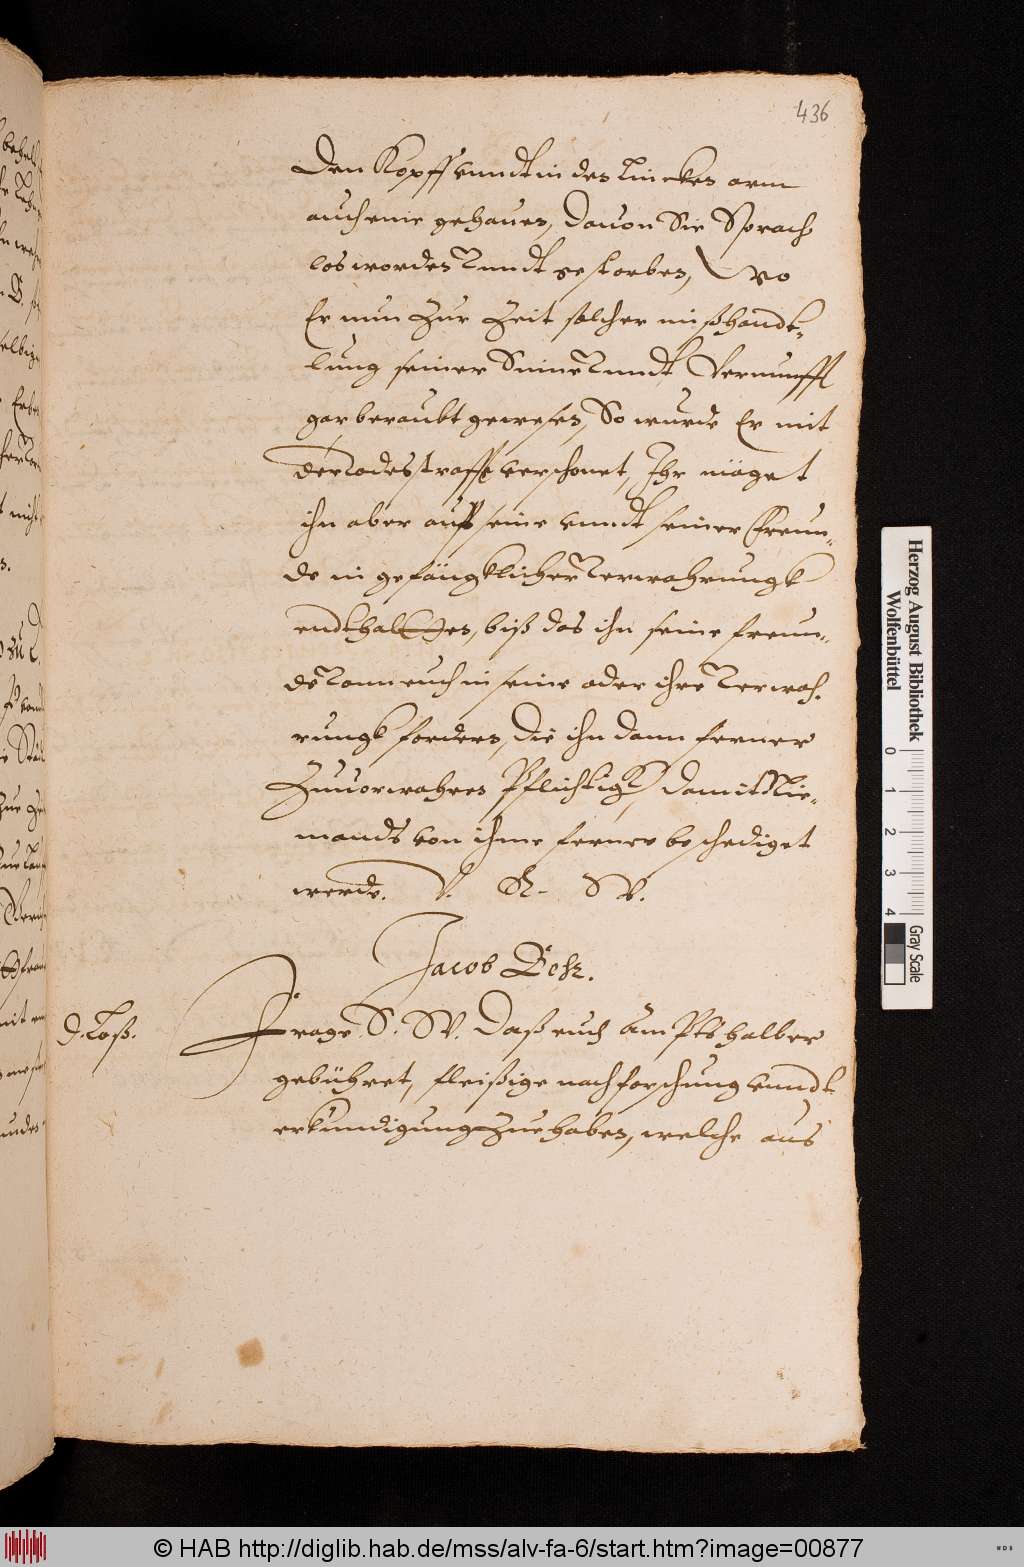 436
Den Kopff vnndt in den lincken arm
auch eine gehauen, dauon Sie Sprach
los worden vnndt gestorben, Wo
Er nun zur Zeit solcher mißhandt-
lung seiner Sinne vnndt Vernunfft
gar beraubt gewesen, So wurde Er mit
der todesstraffe verschonet, Ihr möget
ihn aber auff seine vnndt seiner Freun-
de in gefängklicher verwahrungk
endthalten, biß das ihn seine freun-
de von euch in seine oder ihre verwah-
rungk fordern, die ihn dann ferner
zuuorwahren Pflichtigk, damit Nie-
mands von ihme ferner beschediget
werde. V. R. W.
Jacob
D. Loß.
Frage S. W. Daß euch AmPts halber
gebühret, fleißige nachforschung vnndt
erkundigung zue haben, welche aus
Herzog August Bibliothek
Wolfenbüttel
0 1 2 3 4
Gray Scale
© HAB http://diglib.hab.de/mss/alv-fa-6/start.htm?image=00877
WDB